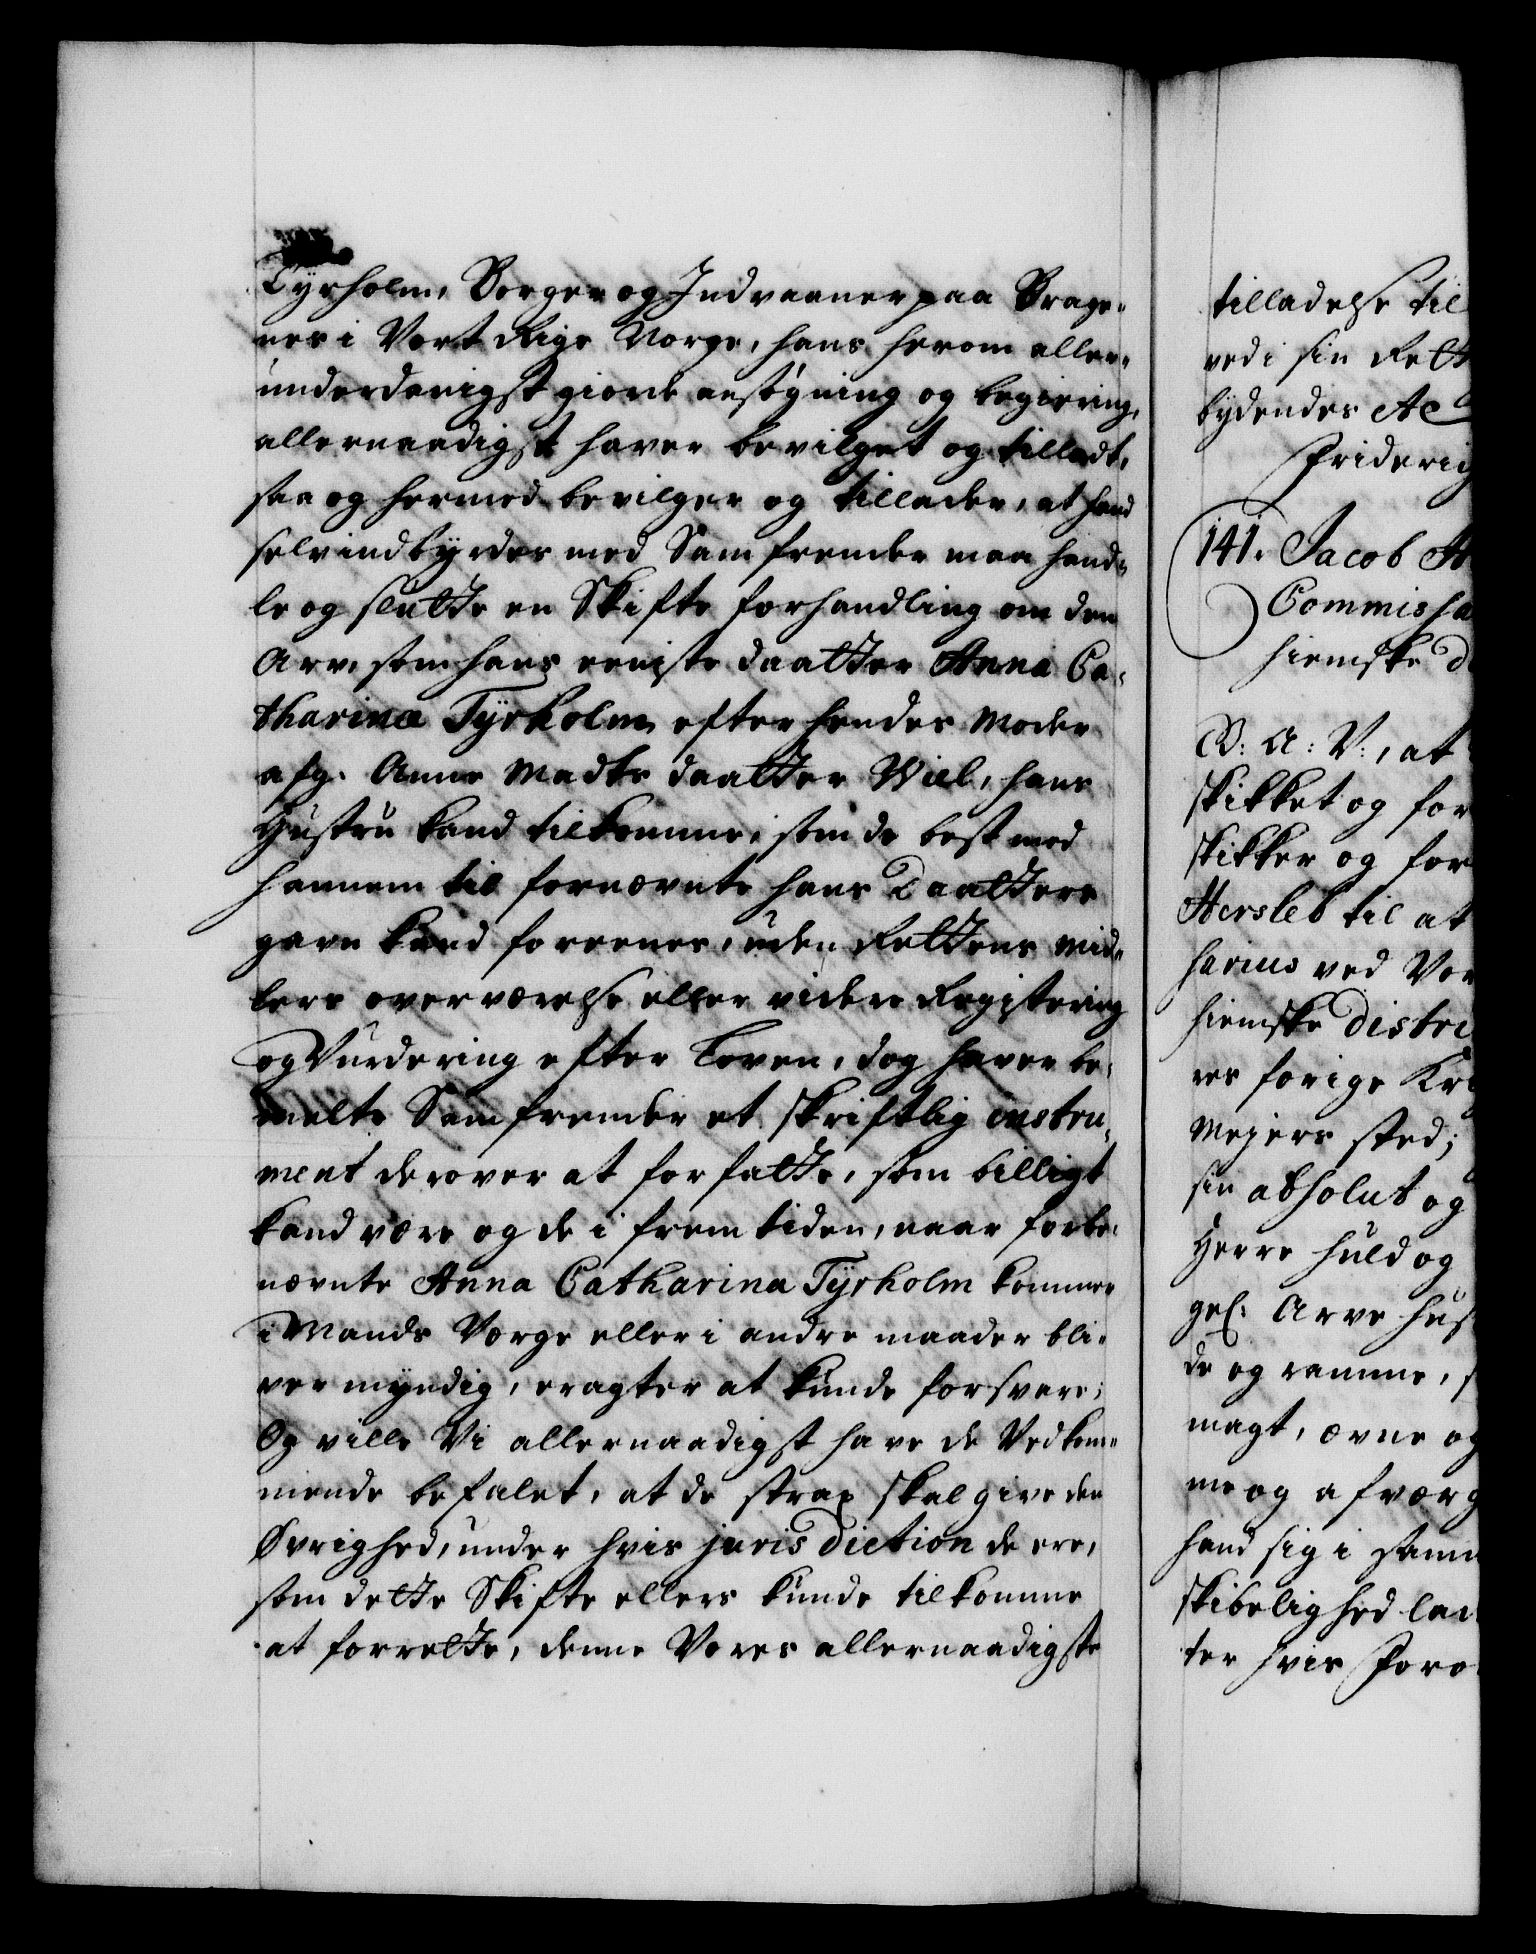 Tyrholm, Borger og Indvaaner paa Brage-
nes i Vort Rige Norge, hans herom aller-
underdanigst giorde ansögning og begiering,
allernaadigst haver bevilget og tilladt,
saa og hermed bevilger og tillader, at hand
selvindbyrdes med Samfrender maa hand-
le og slutte en Skifte forhandling om den
Arv, som hans eeniste daatter Anna Ca-
tharina Tyrholm efter hendes Moder
afg. Anne Madts daatter Wiel, hans
Hustru kand tilkomme, som de best med
hannem til fornævnte hans Daatters
gavn kand foreenes, uden Rettens Mid-
lers overværelse eller videre Registering
og Vurdering efter Loven, dog haver be-
melte Samfrender et skriftlig instru-
ment derover at forfatte, som billigt
kand være og de i fremtiden, naar forbe-
nævnte Anna Catharina Tyrholm kommer
i Mands Værge eller i andre maader bli-
ver myndig, eragter at kunde forsvare;
Og ville Vi allernaadigst have de Vedkom-
mende befalet, at de strax skal give den
Øvrighed, under hvis jurisdiction de ere,
som dette Skifte ellers kunde tilkomme
at forrette, denne Vores allernaadigste
tilladelse til
ved i sin Rett
bydendes Ac
Friderig
141. Jacob H
Commissa
hiemske d
G: A: V:, at
skikket og for
skikker og for
Hersleb til at
sarius ved Vor
hiemske distri
res forige Kri
Mejers sted;
sin absolut og
Herre huld og
gel: Arve hus
de og ramme, s
magt, ævne og
me og afværg
hand sig i samm
skibelighed lad
ter hvis Foro